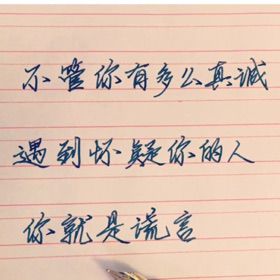 不管你有多么真诚
遇到怀疑你的人
你就是谎言